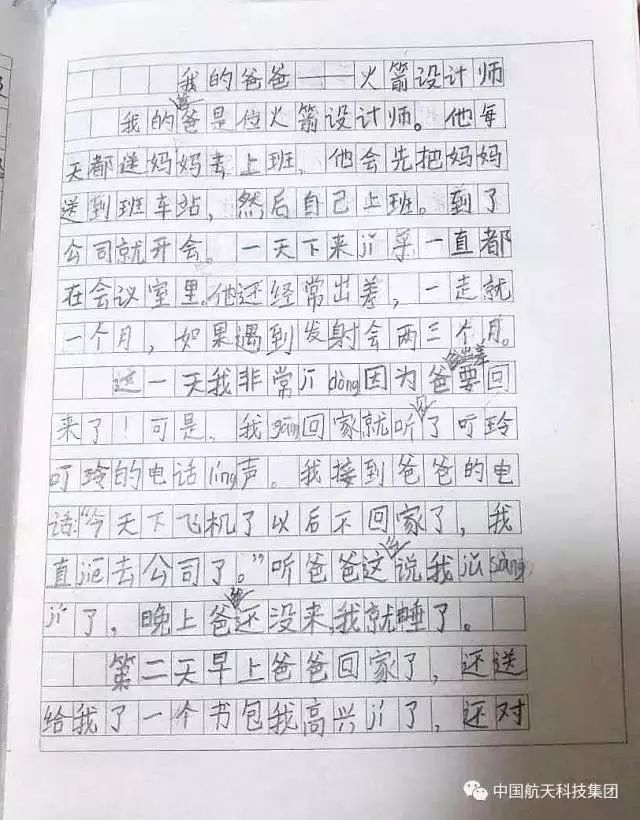 我的爸爸——火箭设计师
我的爸爸是位火箭设计师。他每
天都送妈妈去上班，他会先把妈妈
送到班车站，然后自己上班。到了
公司就开会。一天下来jǐ乎一直都
在会议室里。他还经常出差，一走就
一个月，如果遇到发射会两三个月。
这一天我非常jī dòng因为爸爸要回
来了！可是，我gāng回家就听了叮玲
叮玲的电话líng声。我接到爸爸的电
话：“今天下飞机了以后不回家了，我
直jiē去公司了。”听爸爸这说我jǔ sàng
jí了，晚上爸爸还没来，我就睡了。
第二天早上爸爸回家了，还送
给我了一个书包我高兴jí了，还对
中国航天科技集团